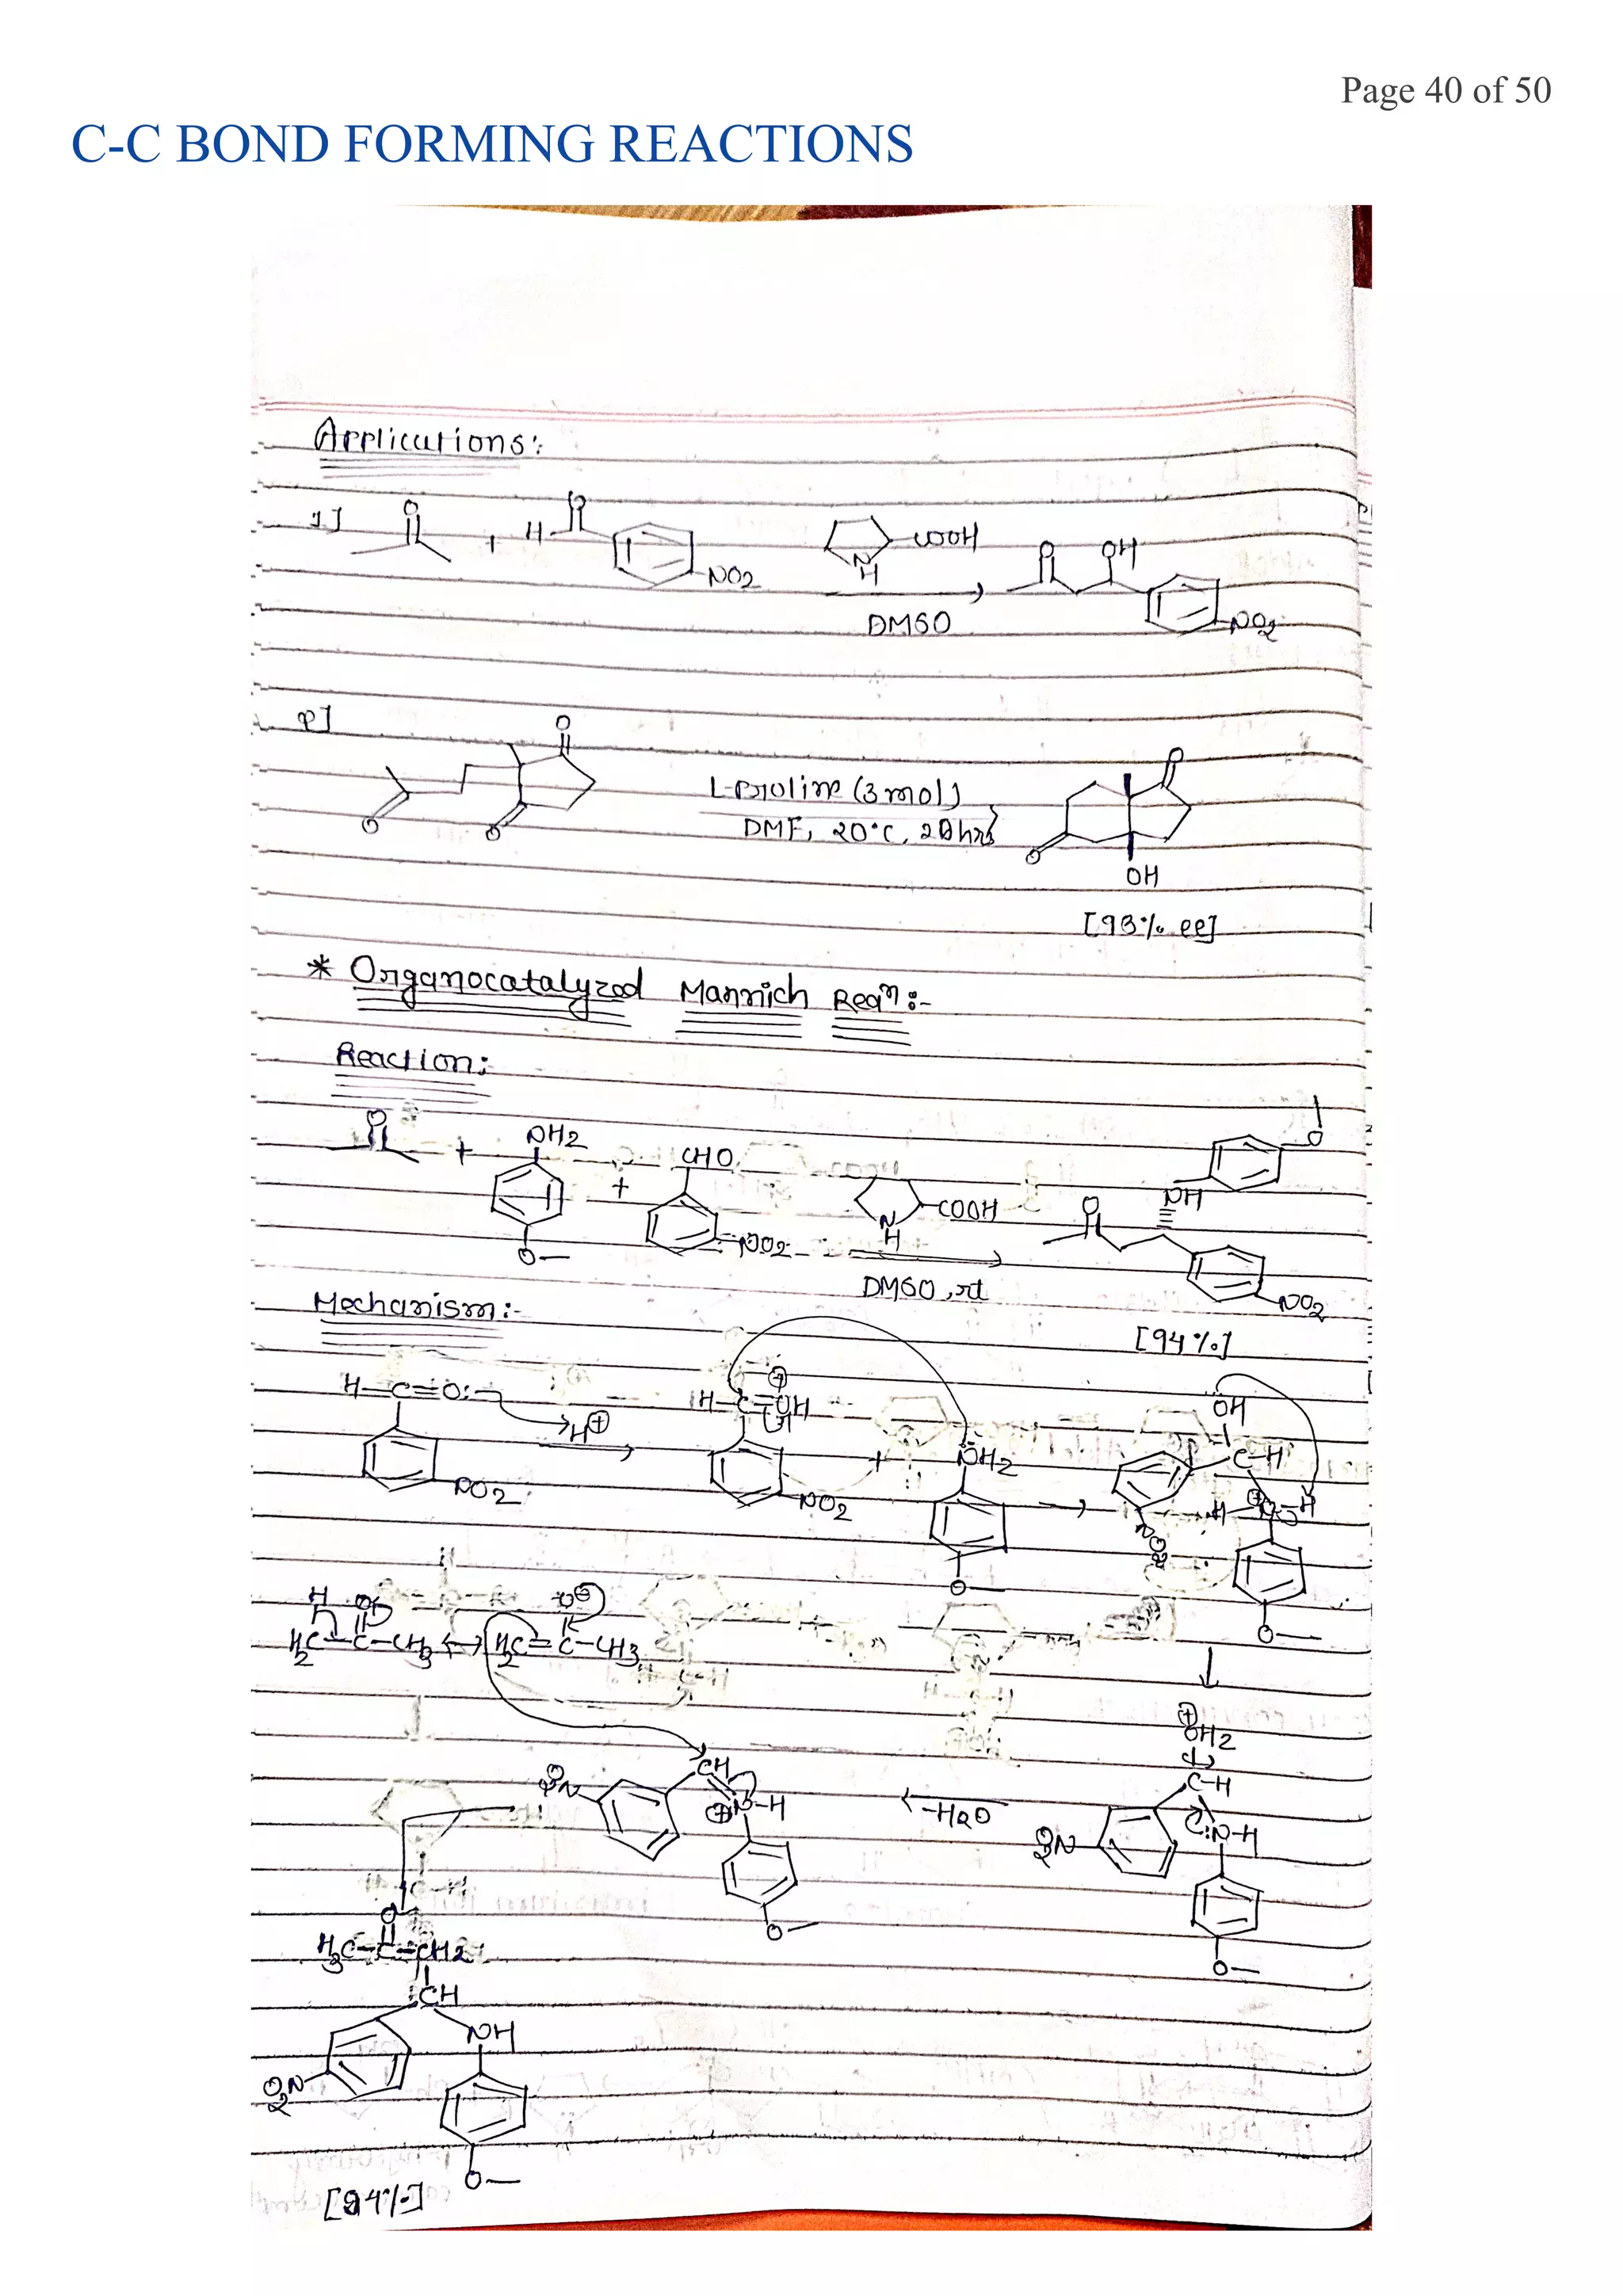 Page 40 of 50
C-C BOND FORMING REACTIONS
Applications:
1]
O
+
H
O
NO2
N
H
COOH
DMSO
O
OH
NO2
2]
O
O
O
L-Proline (3 mol)
DMF, 20°C, 20 hrs
O
O
OH
[93% ee]
* Organocatalyzed Mannich Reaⁿ:-
Reaction:
O
+
NH2
O
+
CHO
NO2
N
H
COOH
DMSO, rt
O
NH
O
NO2
[94%]
Mechanism:-
H-C=O:
NO2
H⊕
H-C=OH
⊕
NO2
+
NH2
O
OH
C-H
H-N-H
⊕
NO2
O
H
O
H2C-C-CH3
O⊖
H2C=C-CH3
⊕
OH2
C-H
:N-H
O2N
O
-H2O
CH
⊕N-H
O2N
O
O
H3C-C-CH2
CH
NH
O2N
O
[94%]